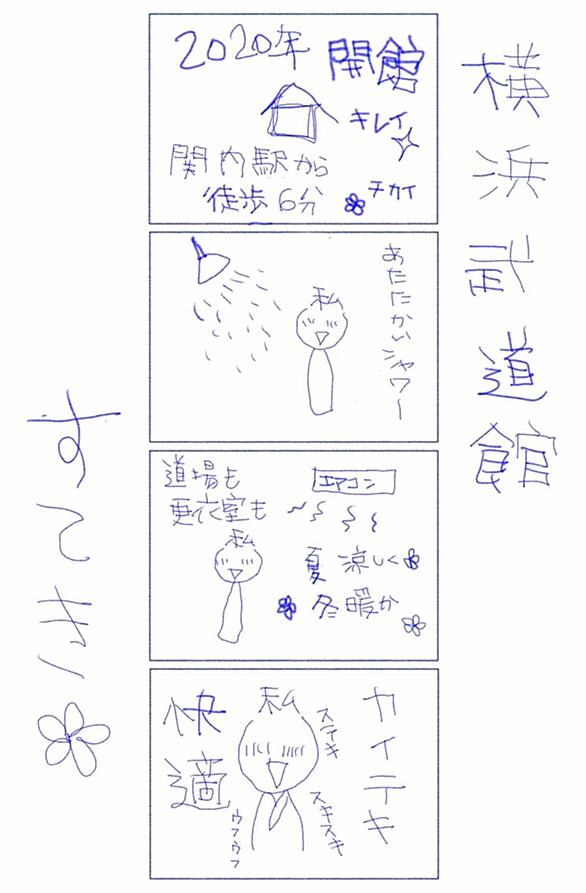 横浜武道館
2020年
開館
キレイ
関内駅から
徒歩6分
チカイ
あたたかいシャワー
私
道場も
更衣室も
エアコン
私
夏涼しく
冬暖か
カイテキ
私
ステキ
スキスキ
快適
ウフウフ
すてき